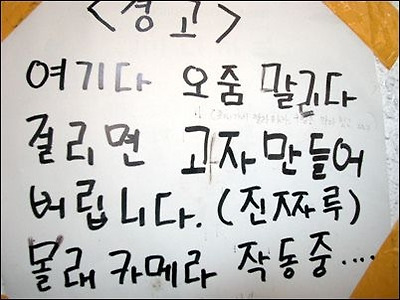 <경고>
여기다 오줌 말기다
걸리면 고자 만들어
버립니다. (진짜루)
몰래 카메라 작동중....